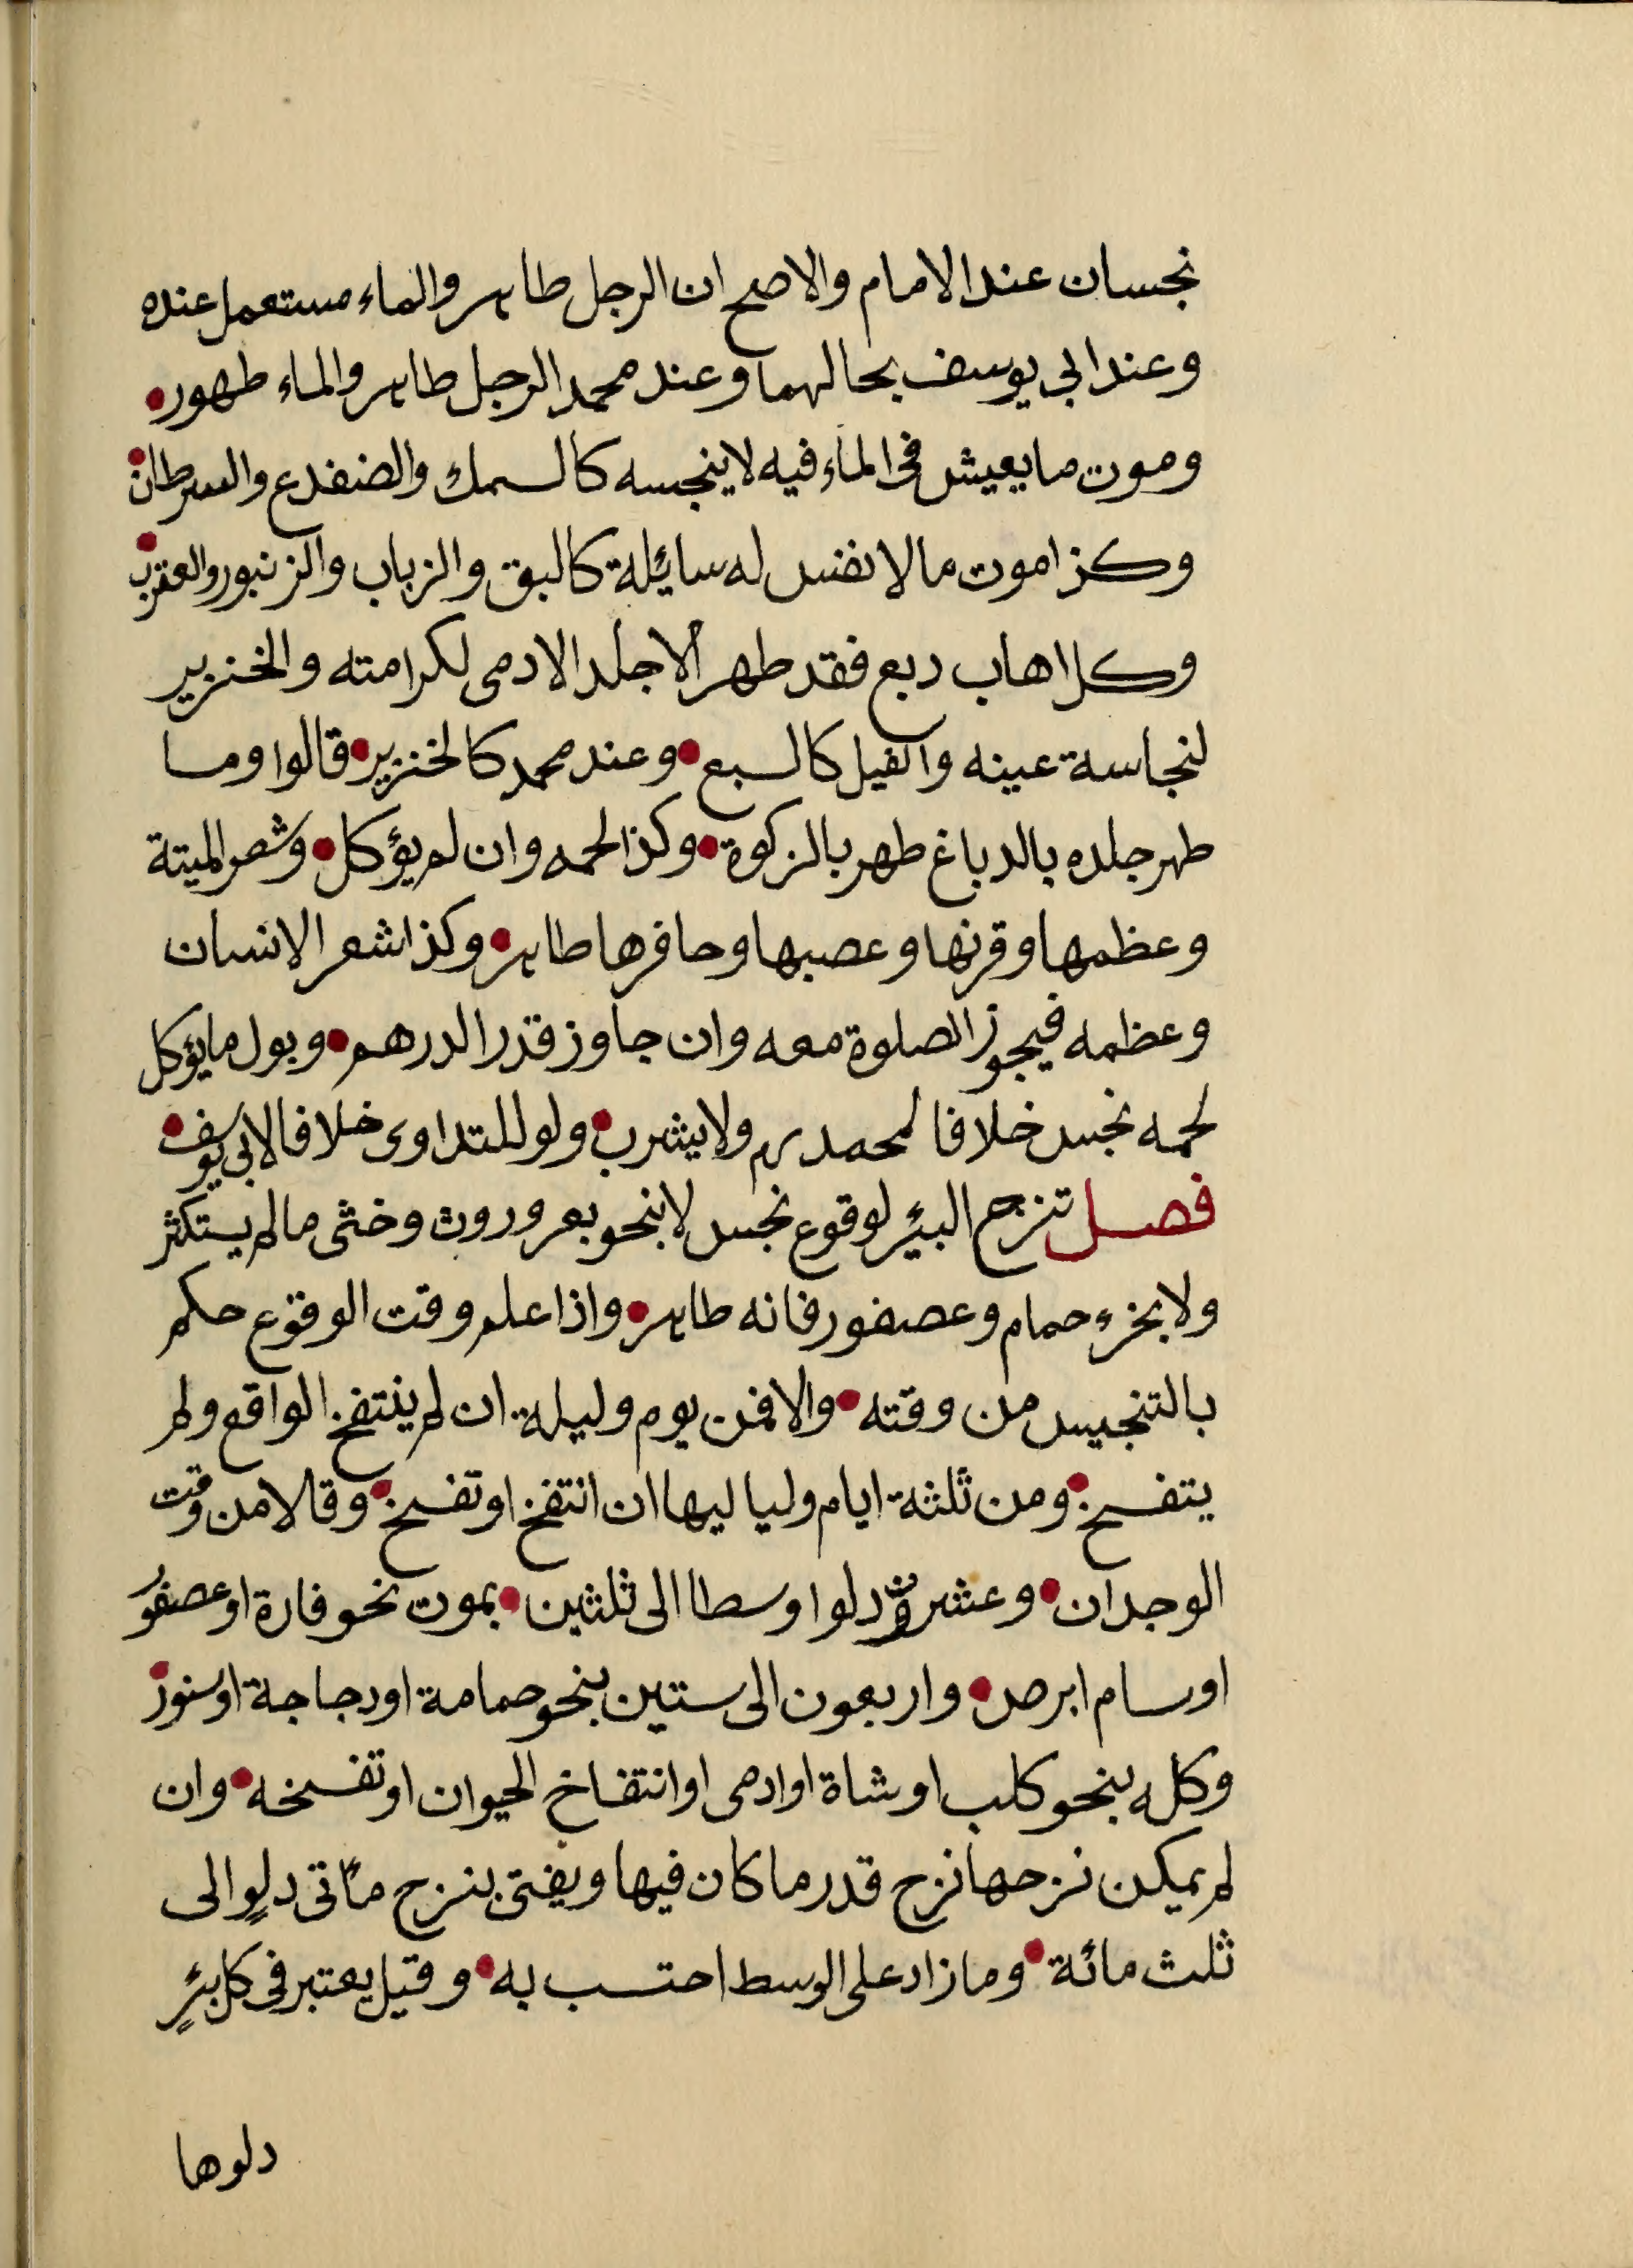 نجسان عند الامام والاصح ان الرجل طاهر والماء مستعمل عنده
وعند ابي يوسف بحالهما وعند محمد الرجل طاهر والماء طهور
وموت ما يعيش في الماء فيه لا ينجسه كالسمك والضفدع والسرطان
وكزا موت ما لا نفس له سائلة كالبق والزباب والزنبور والعقرب
وكل اهاب دبغ فقد طهر الا جلد الادمى لكرامته والخنزير
لنجاسة عينه والفيل كالسبع وعند محمد كالخنزير قالوا وما
طهر جلده بالدباغ طهر بالزكوة وكذا لحمه وان لم يؤكل وشعر الميتة
وعظمها وقرنها وعصبها وحافرها طاهر وكذا شعر الانسان
وعظمه فيجوز الصلوة معه وان جاوز قدر الدرهم وبول ما يؤكل
لحمه نجس خلافا لمحمد رم ولا يشرب ولو للتداوى خلافا لابي يوسف
فصل تنزح البئر لوقوع نجس لا بنحو بعر وروث وخثى ما لم يستكثر
ولا بخرء حمام وعصفور فانه طاهر واذا علم وقت الوقوع حكم
بالتنجيس من وقته والا فمن يوم وليلة ان لم ينتفخ الواقع ولم
يتفسخ ومن ثلثة ايام ولياليها ان انتفخ او تفسخ وقالا من وقت
الوجدان وعشرون دلوا وسطا الى ثلثين بموت نحو فارة او عصفور
او سام ابرص واربعون الى ستين بنحو حمامة او دجاجة او سنور
وكله بنحو كلب او شاة او ادمى او انتفاخ الحيوان او تفسخه وان
لم يمكن نزحها نزح قدر ما كان فيها ويفتى بنزح مأتى دلوٍ الى
ثلث مائة وما زاد على الوسط احتسب به وقيل يعتبر في كل بئرٍ
دلوها